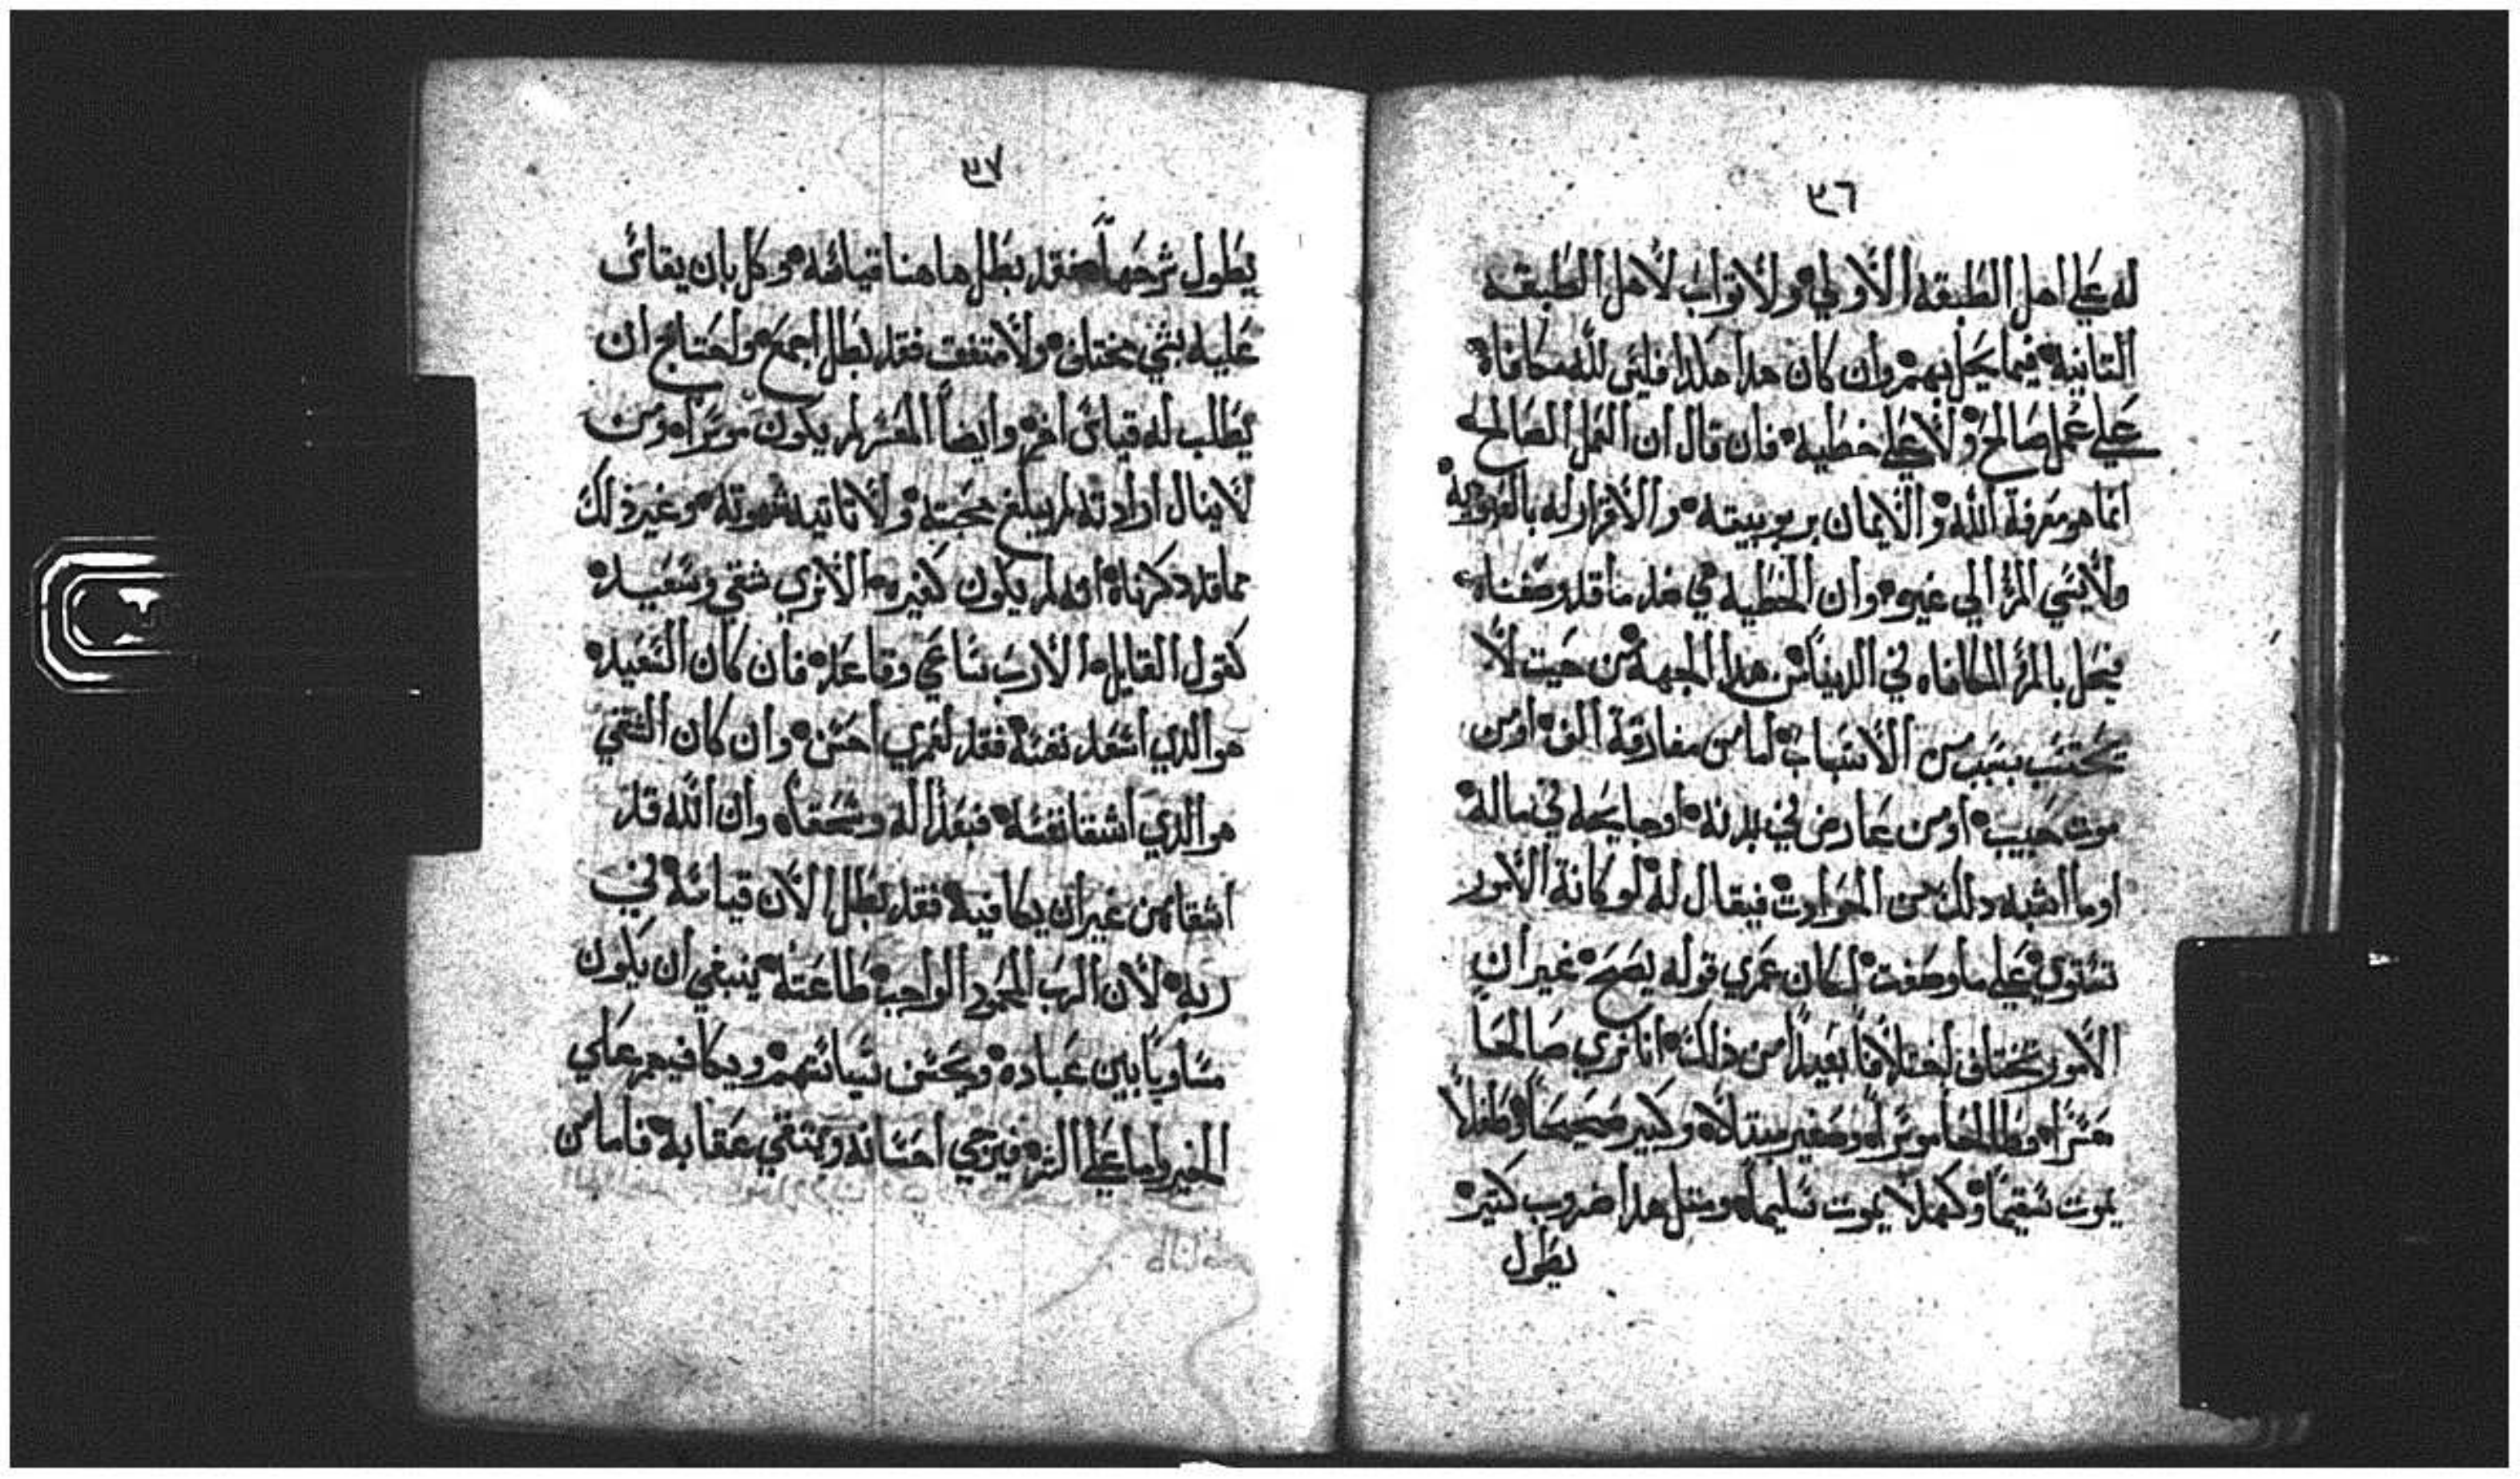 ٣٦
له على اهل الطبقه الاولي ولا ثواب لاهل الطبقه
التانيه فيما يحل بهم وان كان هدا هكدا فليس لله مكافاة
علي عمل صالح ولا علي خطيه فان قال ان العمل الصالح
انما هو معرفة الله والايمان بربوبيته والاقرار له بالعبودية
ولا يسي المرء الي غيره وان الخطيه هي ضد ما قد وصفناه
فيحل بالمرء المكافاه في الدنيا من هدا الجهة من حيت لا
يحتسب بسبب من الاسباب اما من مفارقة الف او من
موت حبيب او من عارض في بدنه او جايحه في ماله
او ما اشبه دلك من الحوادث فيقال له لو كانة الامور
تستوي علي ما وصفت لكان عمري قوله يصح غير ان
الامور تختلف اختلافا بعيدا من ذلك انا نري صالحا
معسرا وطالحا موسرا وصغير مبتلا وكبير صحيحا وطفلا
يموت سقيما وكهلا يموت سليما ومتل هدا ضروب كتير
يطول
٣٧
يطول شرحها فقد بطل هاهنا قياسه وكل بان يقاس
عليه بشي مختلف ولا متفق فقد بطل اجمع واحتاج ان
يطلب له قياس اخر وايضا المعسر لم يكون موسرا ومن
لا ينال ارادته لم يبلغ محبته ولا تاتيه شهوته وغير ذلك
مما قد دكرناه انه لم يكون كغيره الا نري شقي وسعيد
كقول القايل الا رب ساعي وقاعد فان كان السعيد
هو الذي اسعد نفسه فقد لعمري احسن وان كان الشقي
هو الذي اشقا نفسه فبعدا له وسحقا وان الله قد
اشقا من غير ان يكافيه فقد بطل الان قياسه في
ربه لان الرب المحمود الواجب طاعته ينبغي ان يكون
مساويا بين عباده ويحسن سياستهم ويكافيهم علي
الخير واما علي الشر فيرجي احسانه ويتقي عقابه فاما من